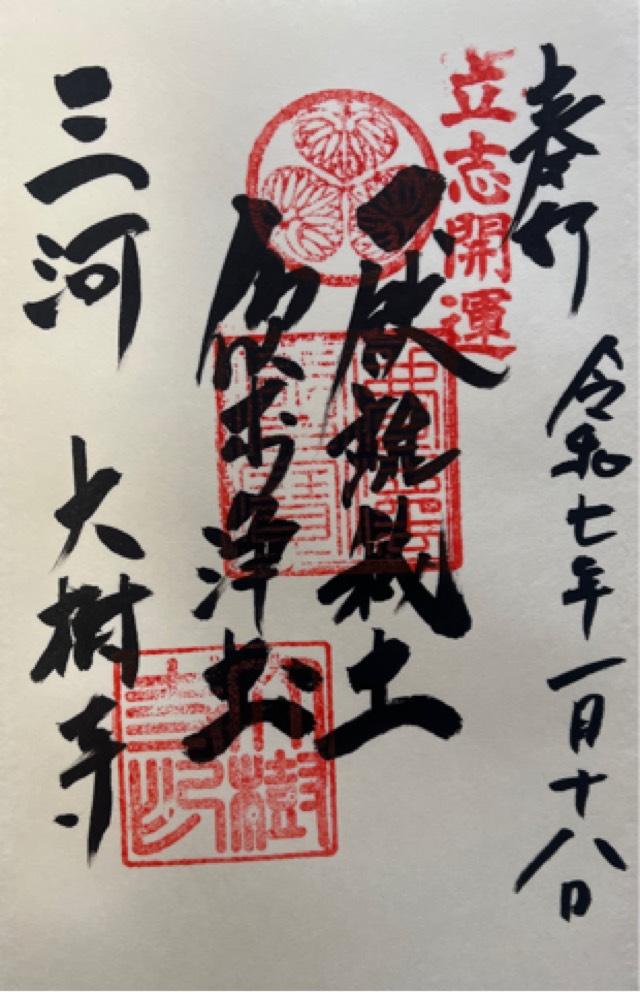 奉拝
令和七年一月十八日
立志開運
厭離穢土
欣求浄土
三河 大樹寺